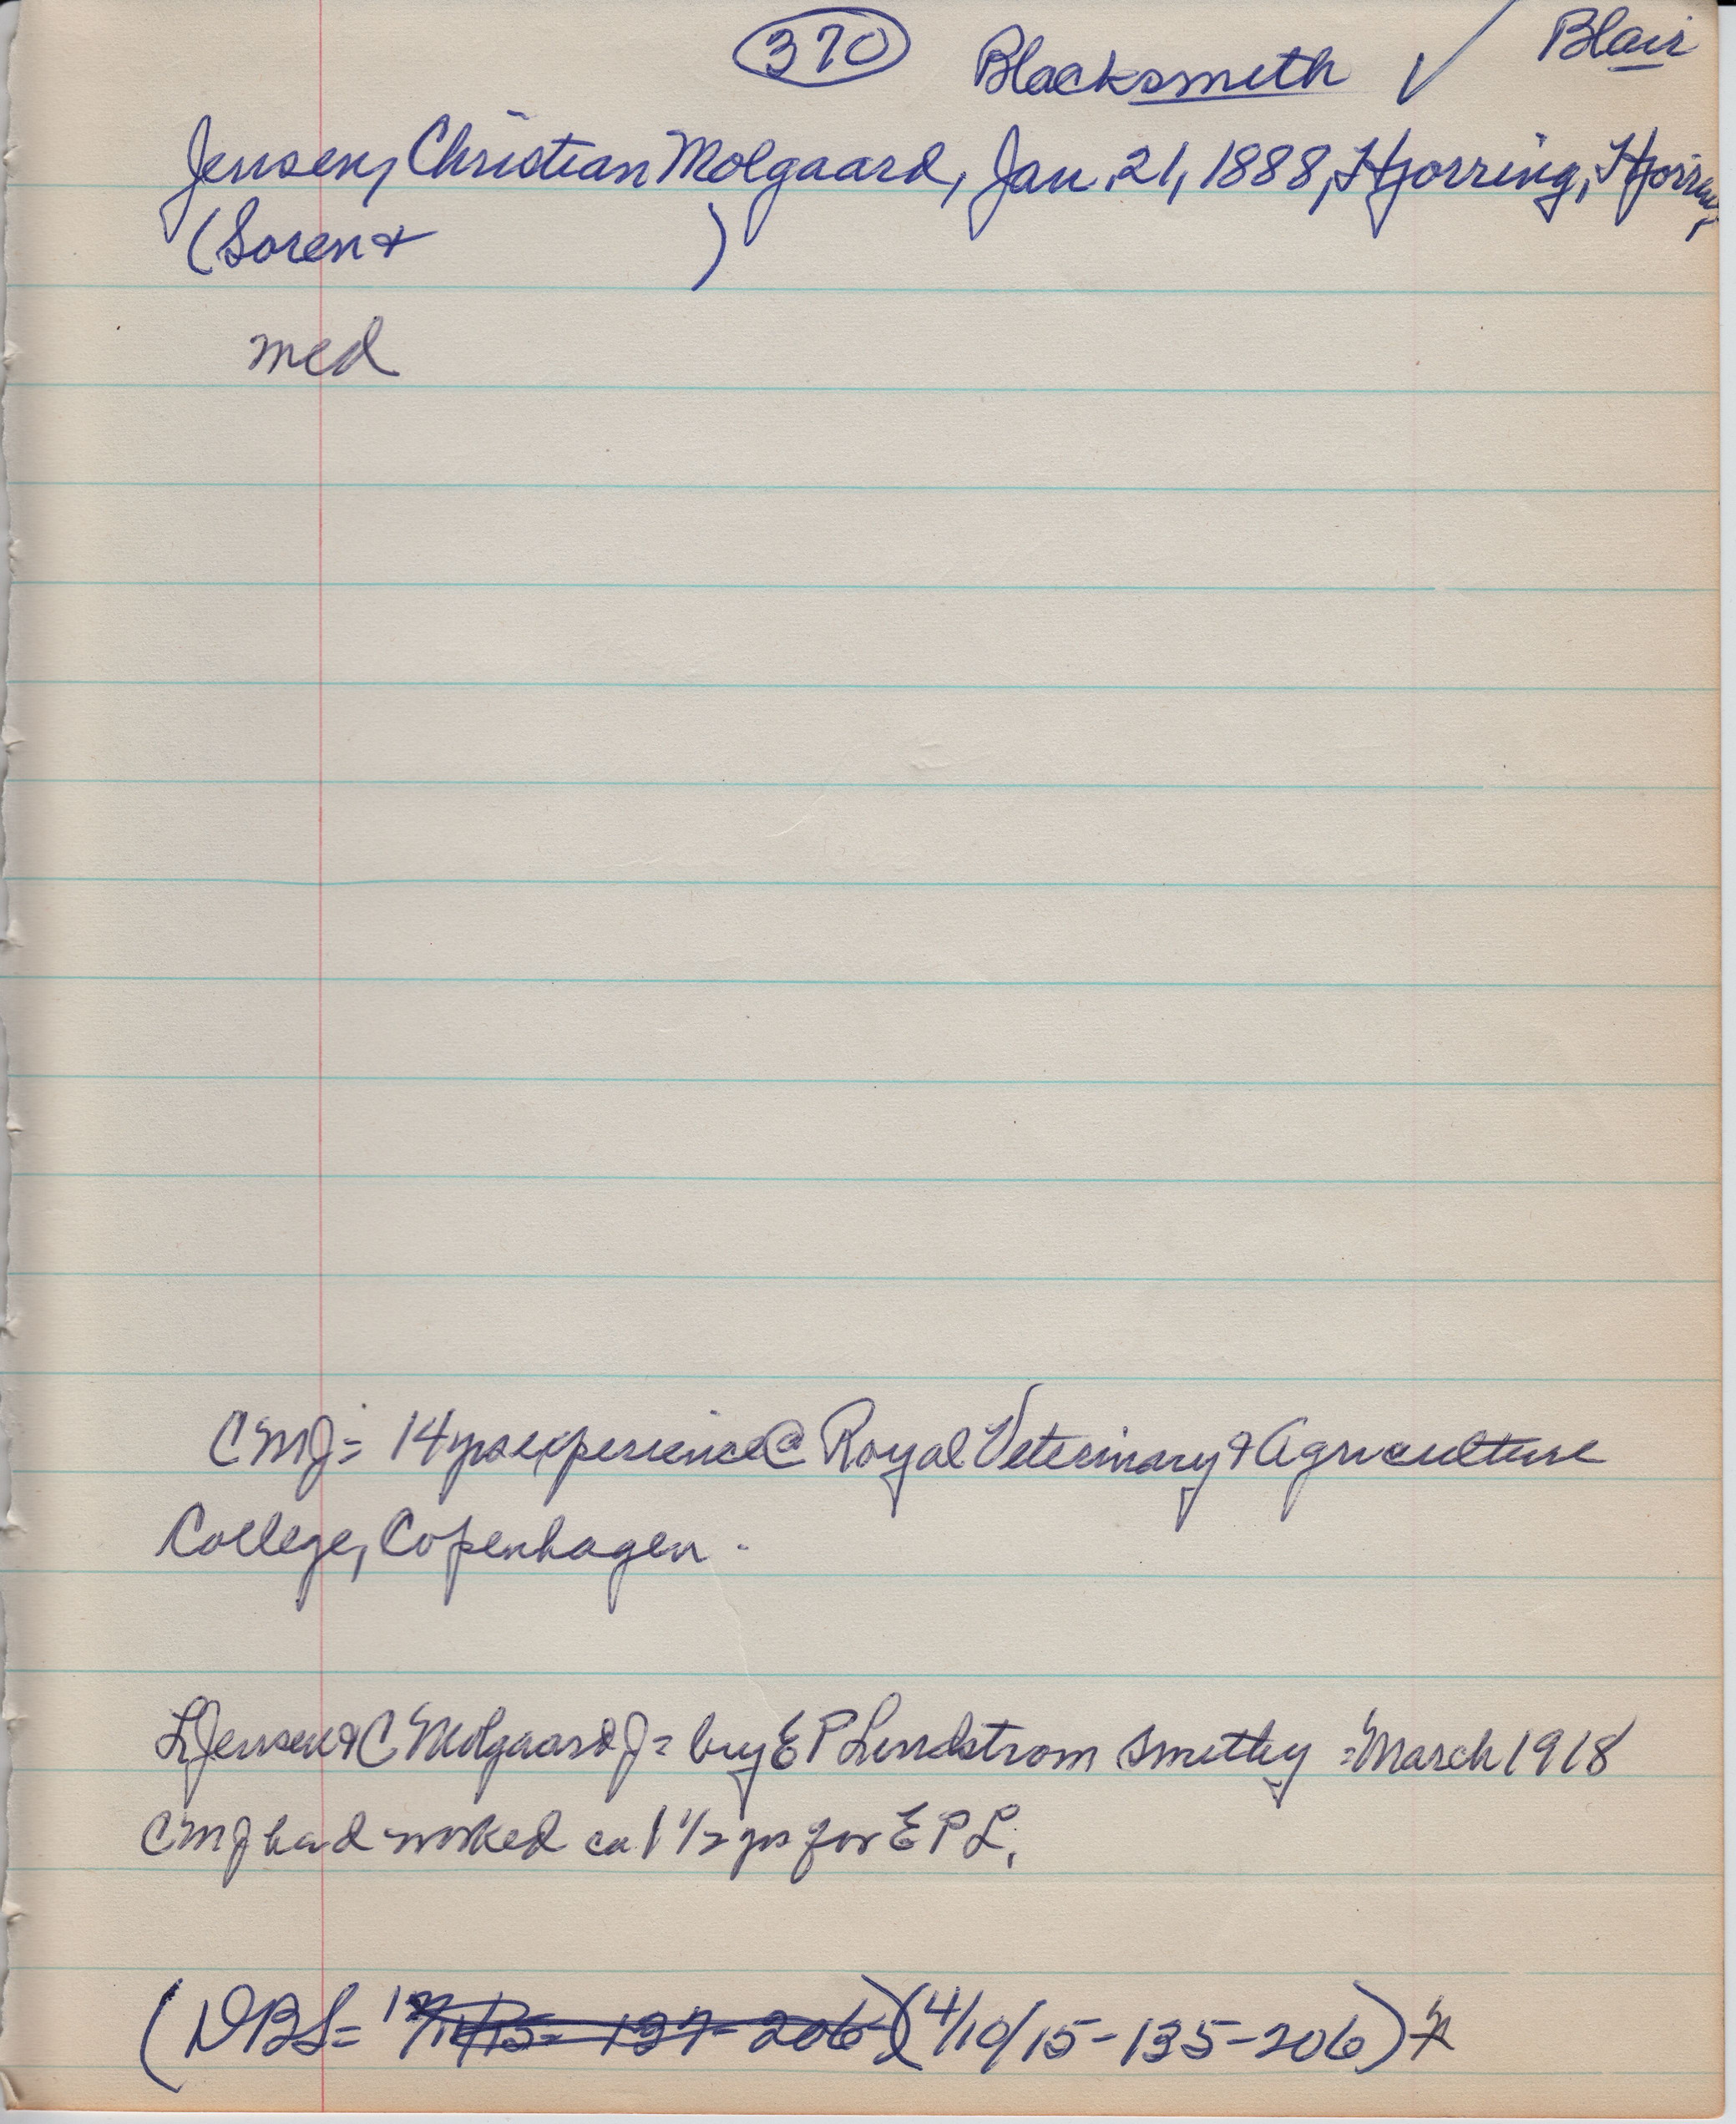 370 Blacksmith ✓ Blair
Jensen, Christian Molgaard, Jan. 21, 1888, Hjorring, Hjorring,
(Soren & )
med
CMJ = 14 yrs experience @ Royal Veterinary & Agriculture
College, Copenhagen.
Jensen & C Molgaard J = buy E P Lundstrom smithy = March 1918
CMJ had worked ca 1 1/2 yrs for E P L.
(DBS= 137-206) (4/10/15-135-206)